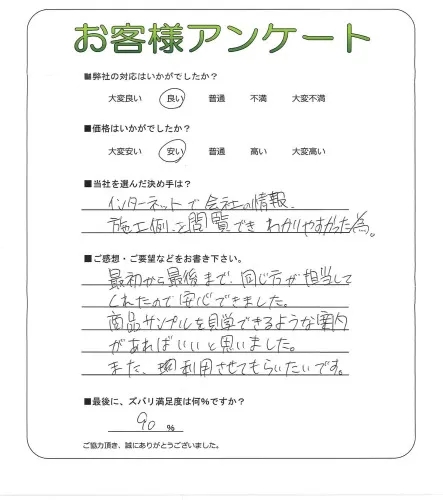 お客様アンケート
■弊社の対応はいかがでしたか?
大変良い 良い 普通 不満 大変不満
■価格はいかがでしたか?
大変安い 安い 普通 高い 大変高い
■当社を選んだ決め手は?
インターネットで会社の情報、
施工例を閲覧でき わかりやすかった為。
■ご感想・ご要望などをお書き下さい。
最初から最後まで、同じ方が担当して
くれたので安心できました。
商品サンプルを見学できるような案内
があればいいと思いました。
また、利用させてもらいたいです。
■最後に、ズバリ満足度は何%ですか?
90 %
ご協力頂き、誠にありがとうございました。